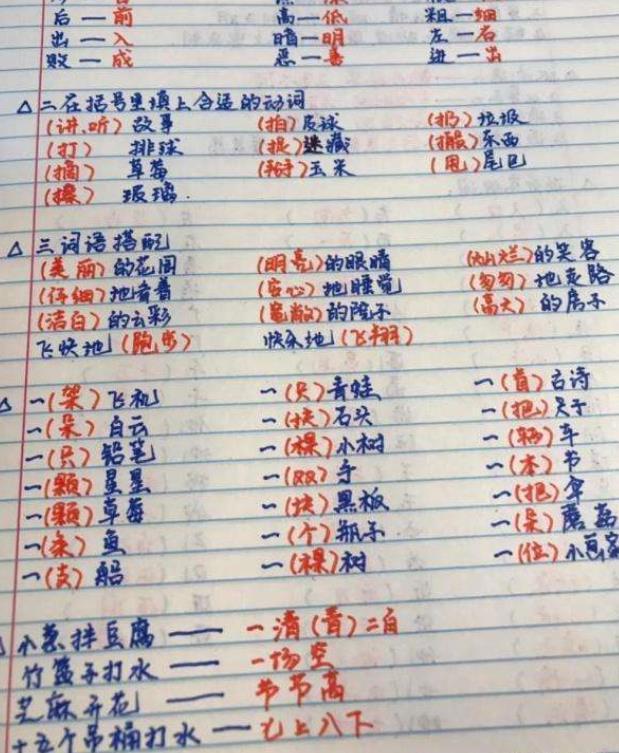 后 — 前 高 — 低 粗 — 细
出 — 入 暗 — 明 左 — 右
败 — 成 恶 — 善 进 — 出
△ 二 在括号里填上合适的动词
(讲、听) 故事 (拍) 皮球 (扔) 垃圾
(打) 排球 (捉) 迷藏 (搬) 东西
(摘) 草莓 (掰) 玉米 (甩) 尾巴
(擦) 玻璃.
△ 三 词语搭配
(美丽) 的花园 (明亮) 的眼睛 (灿烂) 的笑容
(仔细) 地看着 (安心) 地睡觉 (匆匆) 地走路
(洁白) 的云彩 (宽敞) 的院子 (高大) 的房子
飞快地 (跑步) 快乐地 (飞翔)
一 (架) 飞机 一 (只) 青蛙 一 (首) 古诗
一 (朵) 白云 一 (块) 石头 一 (把) 尺子
一 (只) 铅笔 一 (棵) 小树 一 (辆) 车
一 (颗) 星星 一 (双) 手 一 (本) 书
一 (颗) 草莓 一 (块) 黑板 一 (把) 伞
一 (条) 鱼 一 (个) 瓶子 一 (朵) 蘑菇
一 (支) 船 一 (棵) 树 一 (位) 小画家
小葱拌豆腐 —— 一清 (青) 二白
竹篮子打水 —— 一场空
芝麻开花 —— 节节高
十五个吊桶打水 — 七上八下